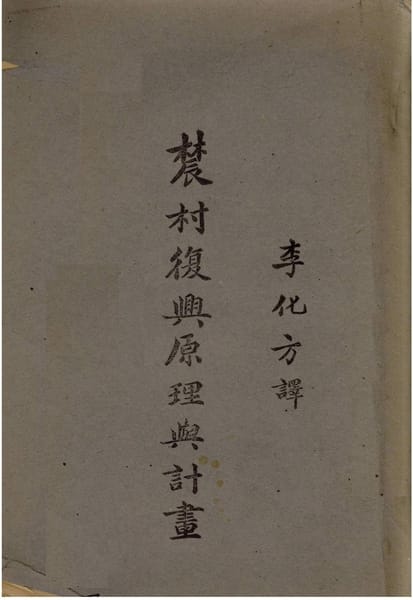 李化方譯
農村復興原理與計畫